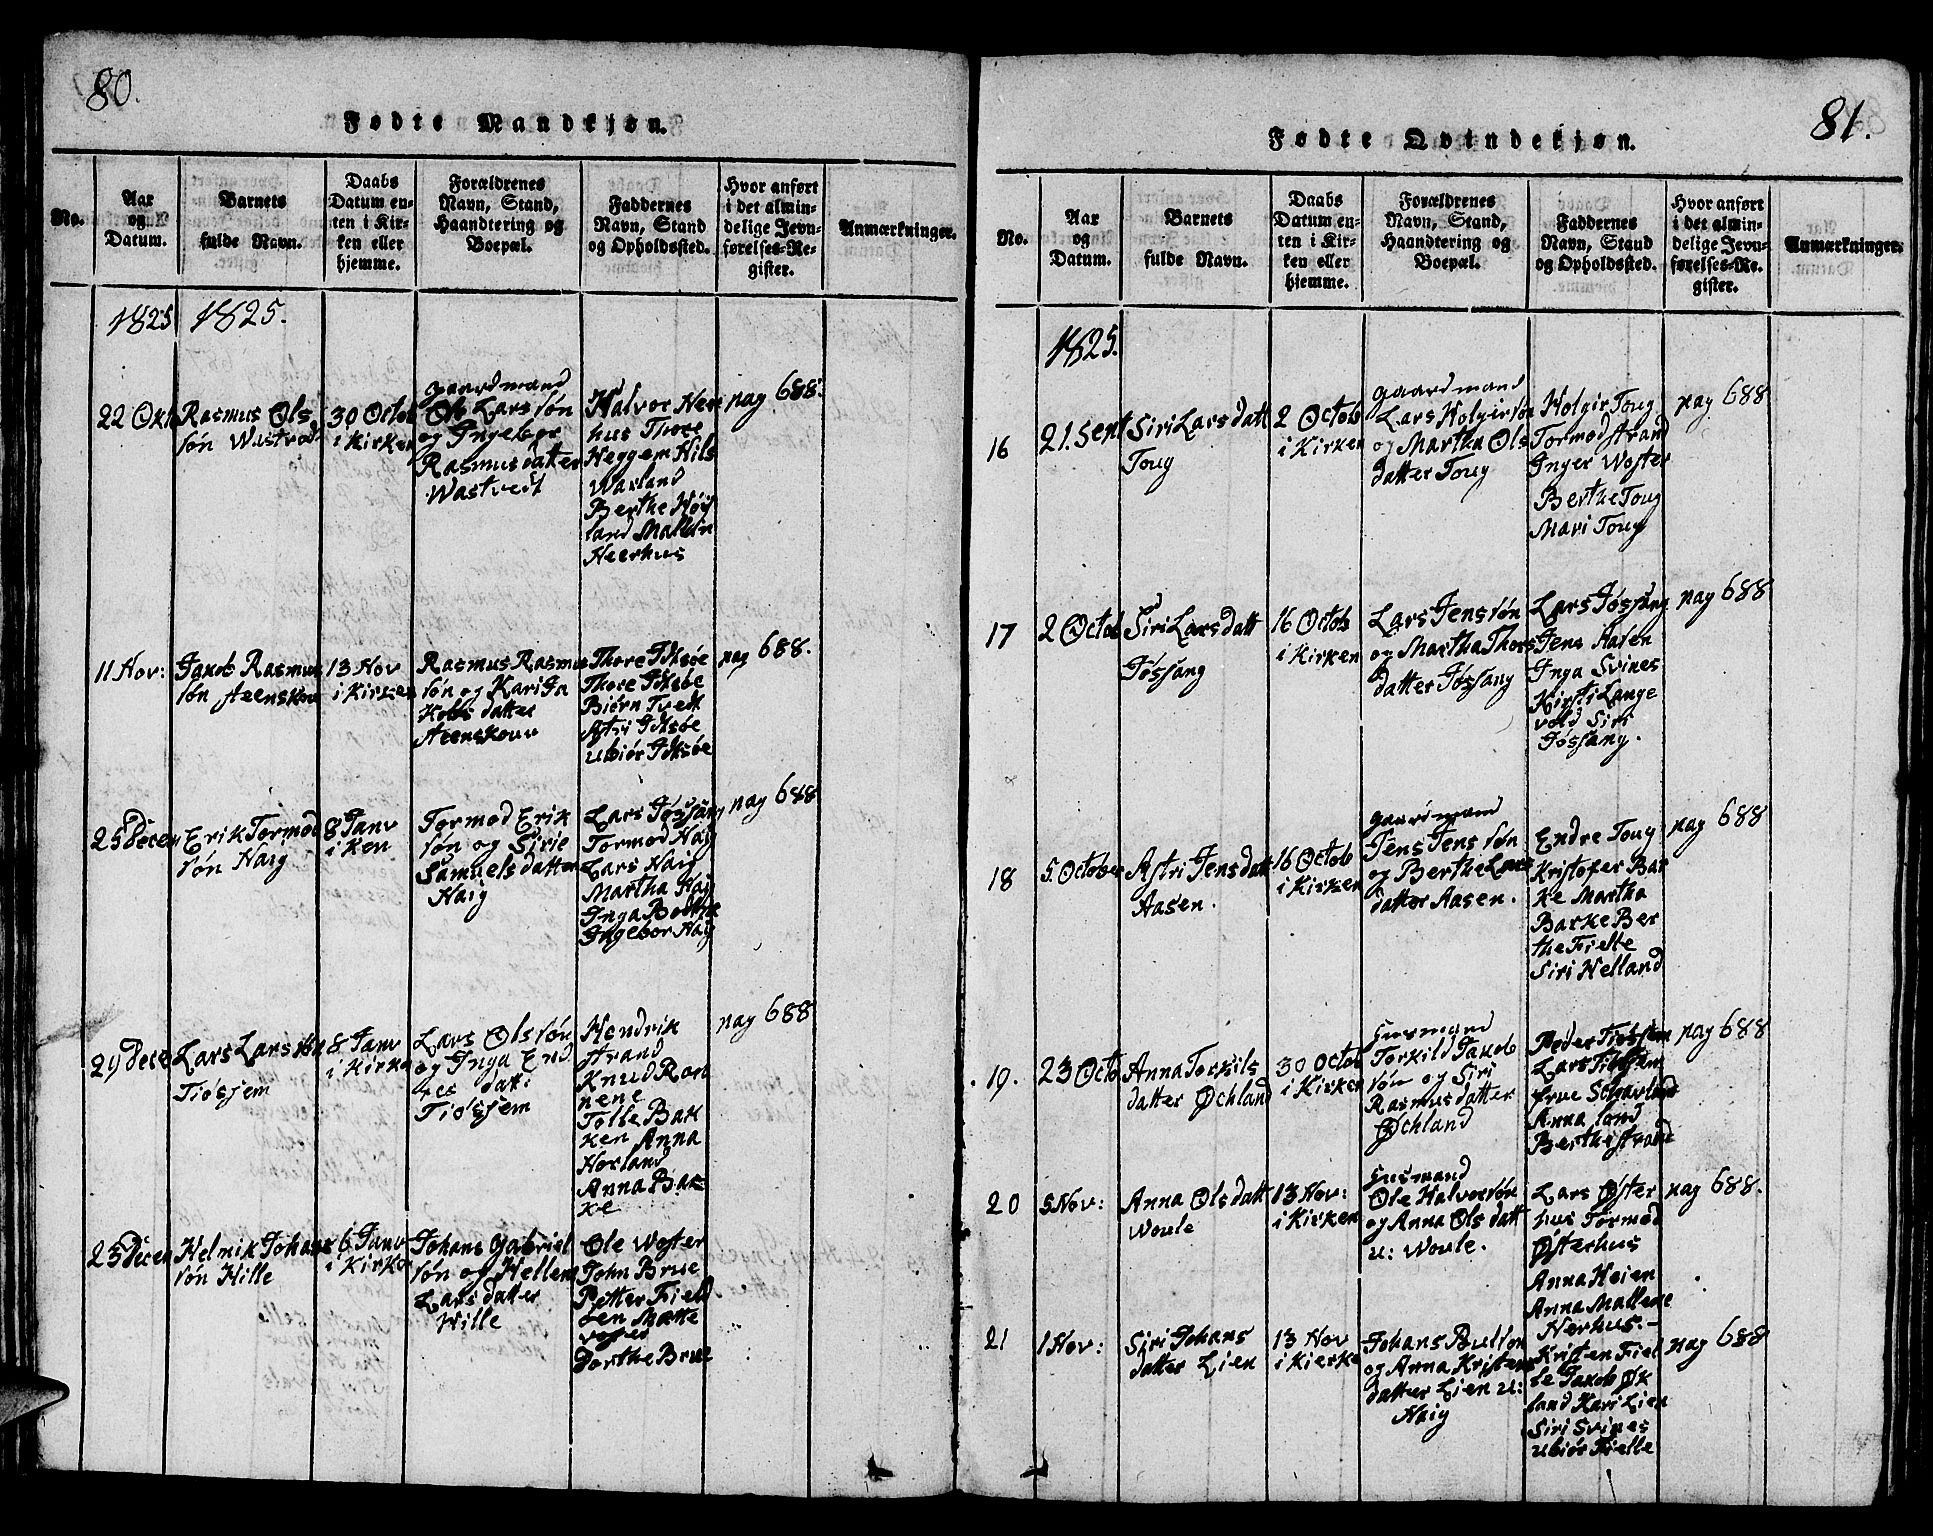 80.
Fødte Mandkjøn.
No.
Aar
og
Datum.
Barnets
fulde Navn.
Daabs
Datum en-
ten i Kir-
ken eller
hjemme.
Forældrenes
Navn, Stand,
Haandtering og
Boepæl.
Faddernes
Navn, Stand
og Opholdssted.
Hvor anført
i det almin-
delige Jevn-
førelses-Re-
gister.
Anmærkninger.
1825
1825.
22 Okt
Rasmus Ols
søn Wastved
30 Octob
i Kirken
gaardmand
Ole Larssøn
og Ingebor
Rasmusdatter
Wastveit
Halvor Neer
hus Thore
Heggem Nils
Warland
Berthe Høy
land Malen
Neerhus
pag 688.
11 Nov:
Jakob Rasmus
søn Steenskou
13 Nov
i Kirken
Rasmus Rasmus
søn og Kari Ja
Kobs datter
Steenskouv
Thore Idsøe
Thore Idsøe
Biørn Tvedt
Astri Idsøe
Ubiør Idsøe
pag 688.
25 Decem
Erik Tormod
søn Haig
8 Janv
i Ken
Tormod Erik
søn og Sirie
Samuelsdatter
Haig
Lars Jøssang
Tormod Haig
Lars Haig
Martha Haig
Inga
Ingebor Haig
pag 688
29 Dece
Lars Larssøn
Tiøssem
8 Janv
i Kirke
Lars Olssøn
og Inga End
res datt:
Tiøssem
Hendrik
strand
Knud Ron
nene
Tolle Bak
ken Anna
Horland
Anna Bak
ke
pag 688
25 Decem
Helmik Johans
søn Hille
6 Janv
i Kirke
Johans Gabriel
søn og Hellem
Lars datter
Hille
Ole Woster
John Brue
Petter Field
øen Matte
voster
Dorthe Brue
81.
Fødte Qvindekjøn.
No.
Aar
og
Datum.
Barnets
fulde Navn.
Daabs
Datum en-
ten i Kir-
ken eller
hjemme.
Forældrenes
Navn, Stand,
Haandtering og
Boepæl.
Faddernes
Navn, Stand
og Opholdssted.
Hvor anført
i det almin-
delige Jevn-
førelses-Re-
gister.
Anmærkninger.
1825.
16
21. Sept
Siri Larsdatt
Toug
2 Octob
i Kirken
gaardmand
Lars Holgirsøn
og Martha Ols
datter Toug
Holgir Toug
Tormod strand
Inger Woster
Berthe Toug
Mari Toug
pag 688
17
2 Octob
Siri Larsdatt
Jøssang
16 Octob
i Kirken
Lars Jenssøn
og Martha Thors
datter Jøssang
Lars Jøssang
Jens Aasen
Inga Svines
Kirsti Lange
vold Siri
Jøssang.
pag 688
18
5 October
Astri Jensdatt
Aasen.
16 Octob
i Kirken
gaardmand
Jens Jenssøn
og Berthe Lars
datter Aasen.
Endre Toug
Kristofer Bar
ke Martha
Barke Ber
the Fielle
Siri Helland
pag 688
19.
23 Octo
Anna Torkils
datter Øchland
30 Octob
i Kirken
Husmand
Torkild Jakob
søn og Siri
Rasmusdatter
Øchland
Peder Tiøssem
Lars Tiøssem
frue
Anna land
Berthe strand
pag 688
20
5 Nov:
Anna Olsdatt
Woule
13 Nov:
i Kirken
Husmand
Ole Halvorsøn
og Anna Olsdatt
u: Woule.
Lars Øster
hus Tormod
Østerhus
Anna Heien
Anna Mallene
Nerhus.-
pag 688.
21
1 Nov:
Siri Johans
datter Lien
13 Nov
i Kierke
Johans Bulton
og Anna Kristens
datter Lien u:
Haig
Kristen Fiel
le Jakob Øk
land Kari Lien
Siri Svines
Ubiør Fielle
pag 688